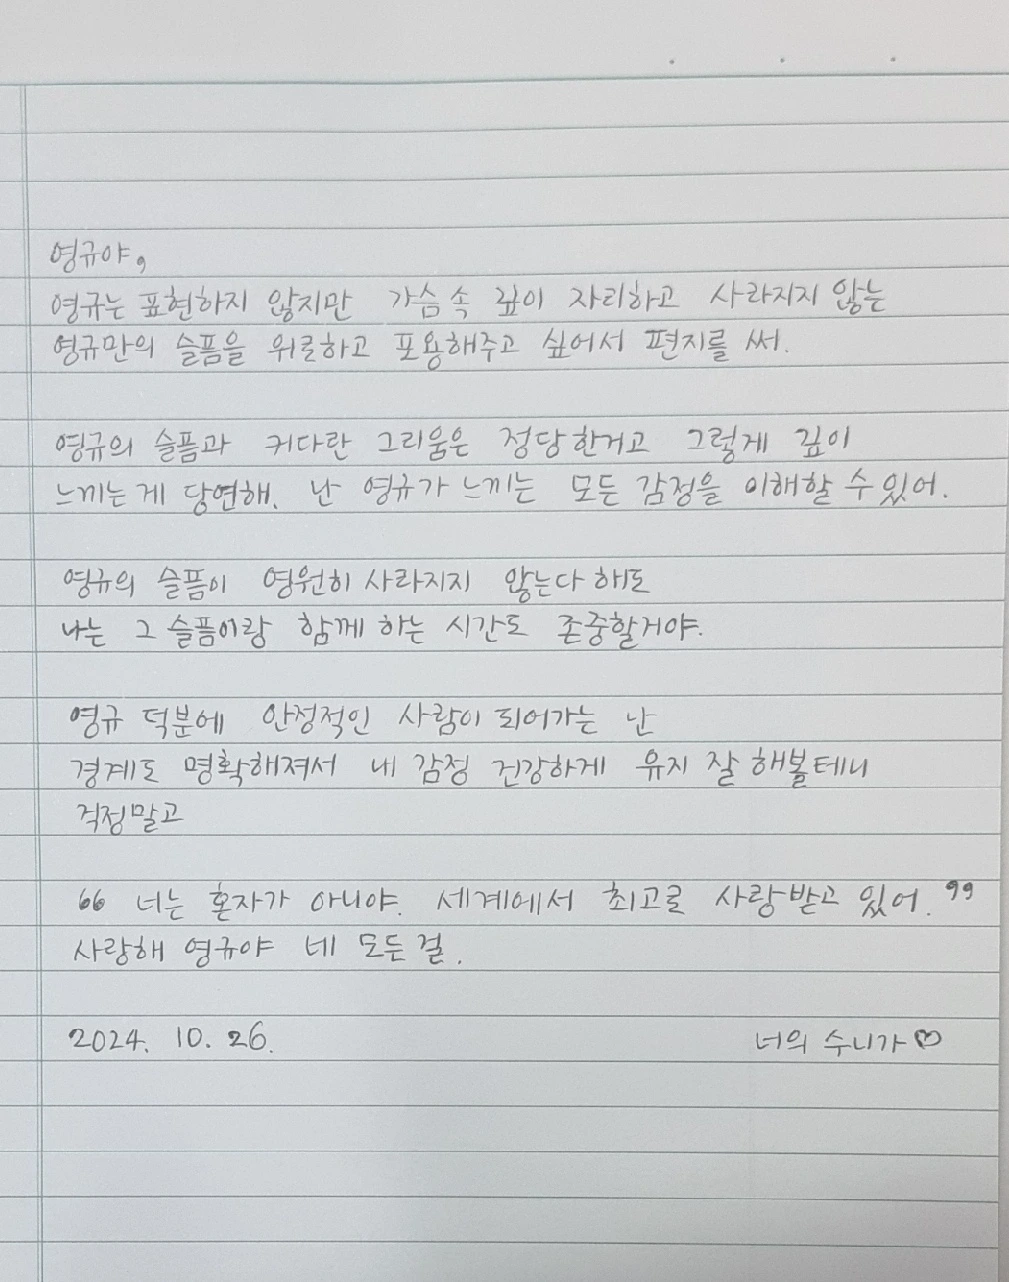 영규야,
영규는 표현하지 않지만 가슴 속 깊이 자리하고 사라지지 않는
영규만의 슬픔을 위로하고 포용해주고 싶어서 편지를 써.
영규의 슬픔과 커다란 그리움은 정당한거고 그렇게 깊이
느끼는 게 당연해. 난 영규가 느끼는 모든 감정을 이해할 수 있어.
영규의 슬픔이 영원히 사라지지 않는다 해도
나는 그 슬픔이랑 함께 하는 시간도 존중할거야.
영규 덕분에 안정적인 사람이 되어가는 난
경계도 명확해져서 내 감정 건강하게 유지 잘 해볼테니
걱정말고
“ 너는 혼자가 아니야. 세계에서 최고로 사랑받고 있어. ”
사랑해 영규야 네 모든 걸.
2024. 10. 26. 너의 수니가♡